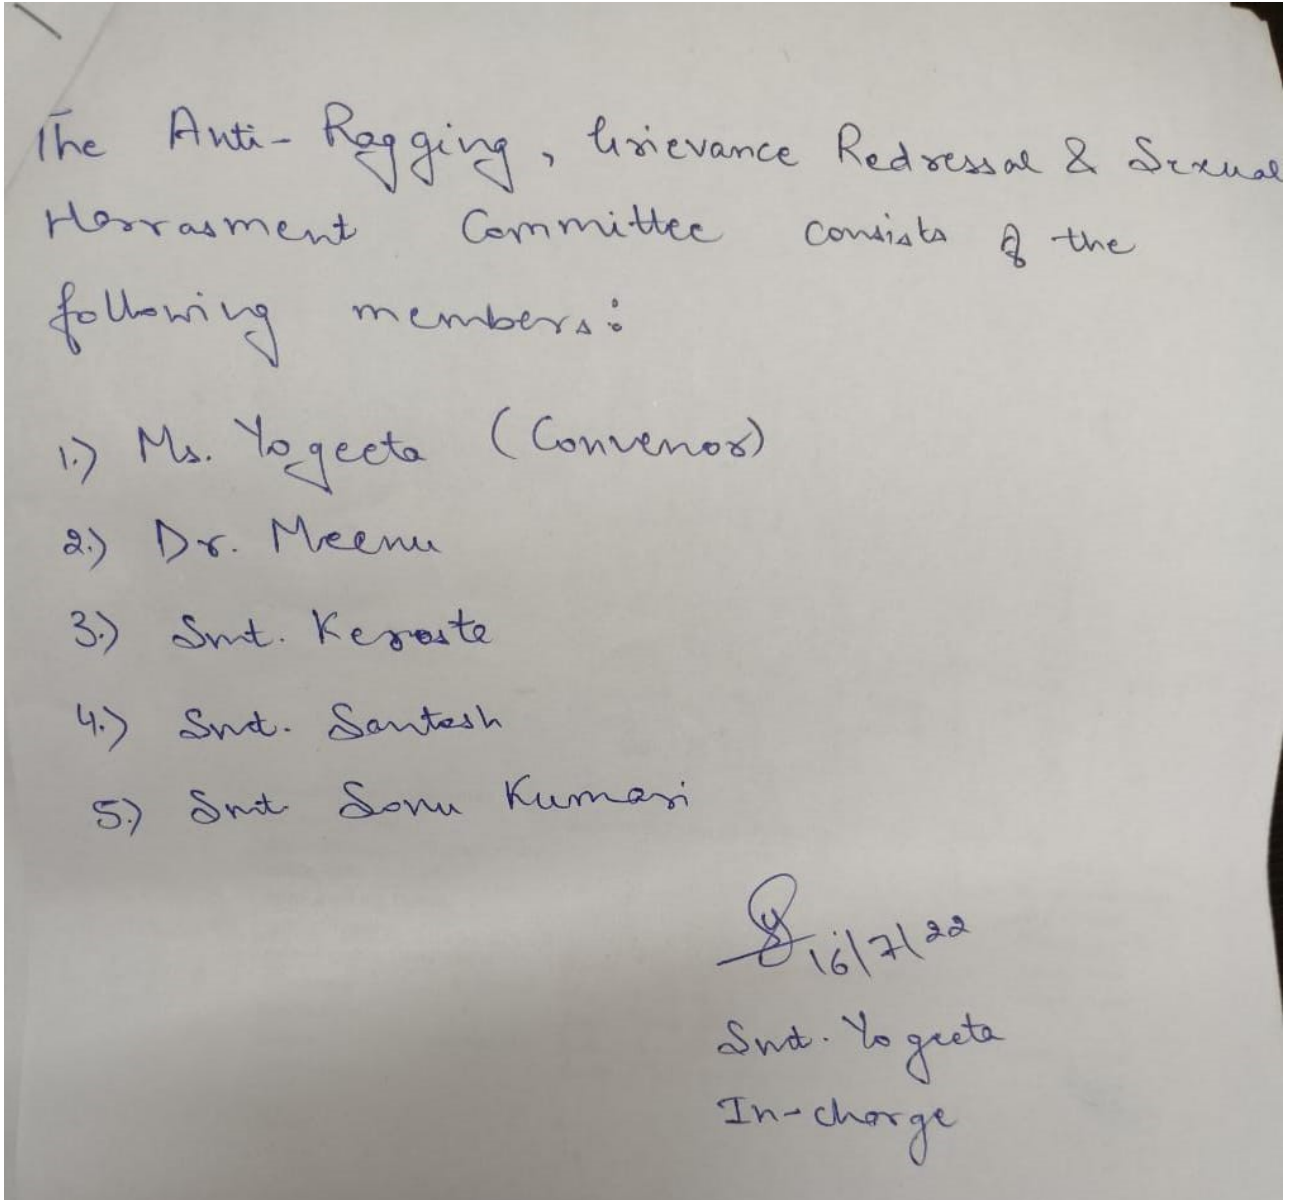 The Anti-Ragging, Grievance Redressal & Sexual
Harrasment Committee consists of the
following members:
1.) Ms. Yogeeta (Convenor)
2.) Dr. Meenu
3.) Smt.
4.) Smt. Santosh
5.) Smt. Sonu Kumari
16/7/22
Smt. Yogeeta
In-charge